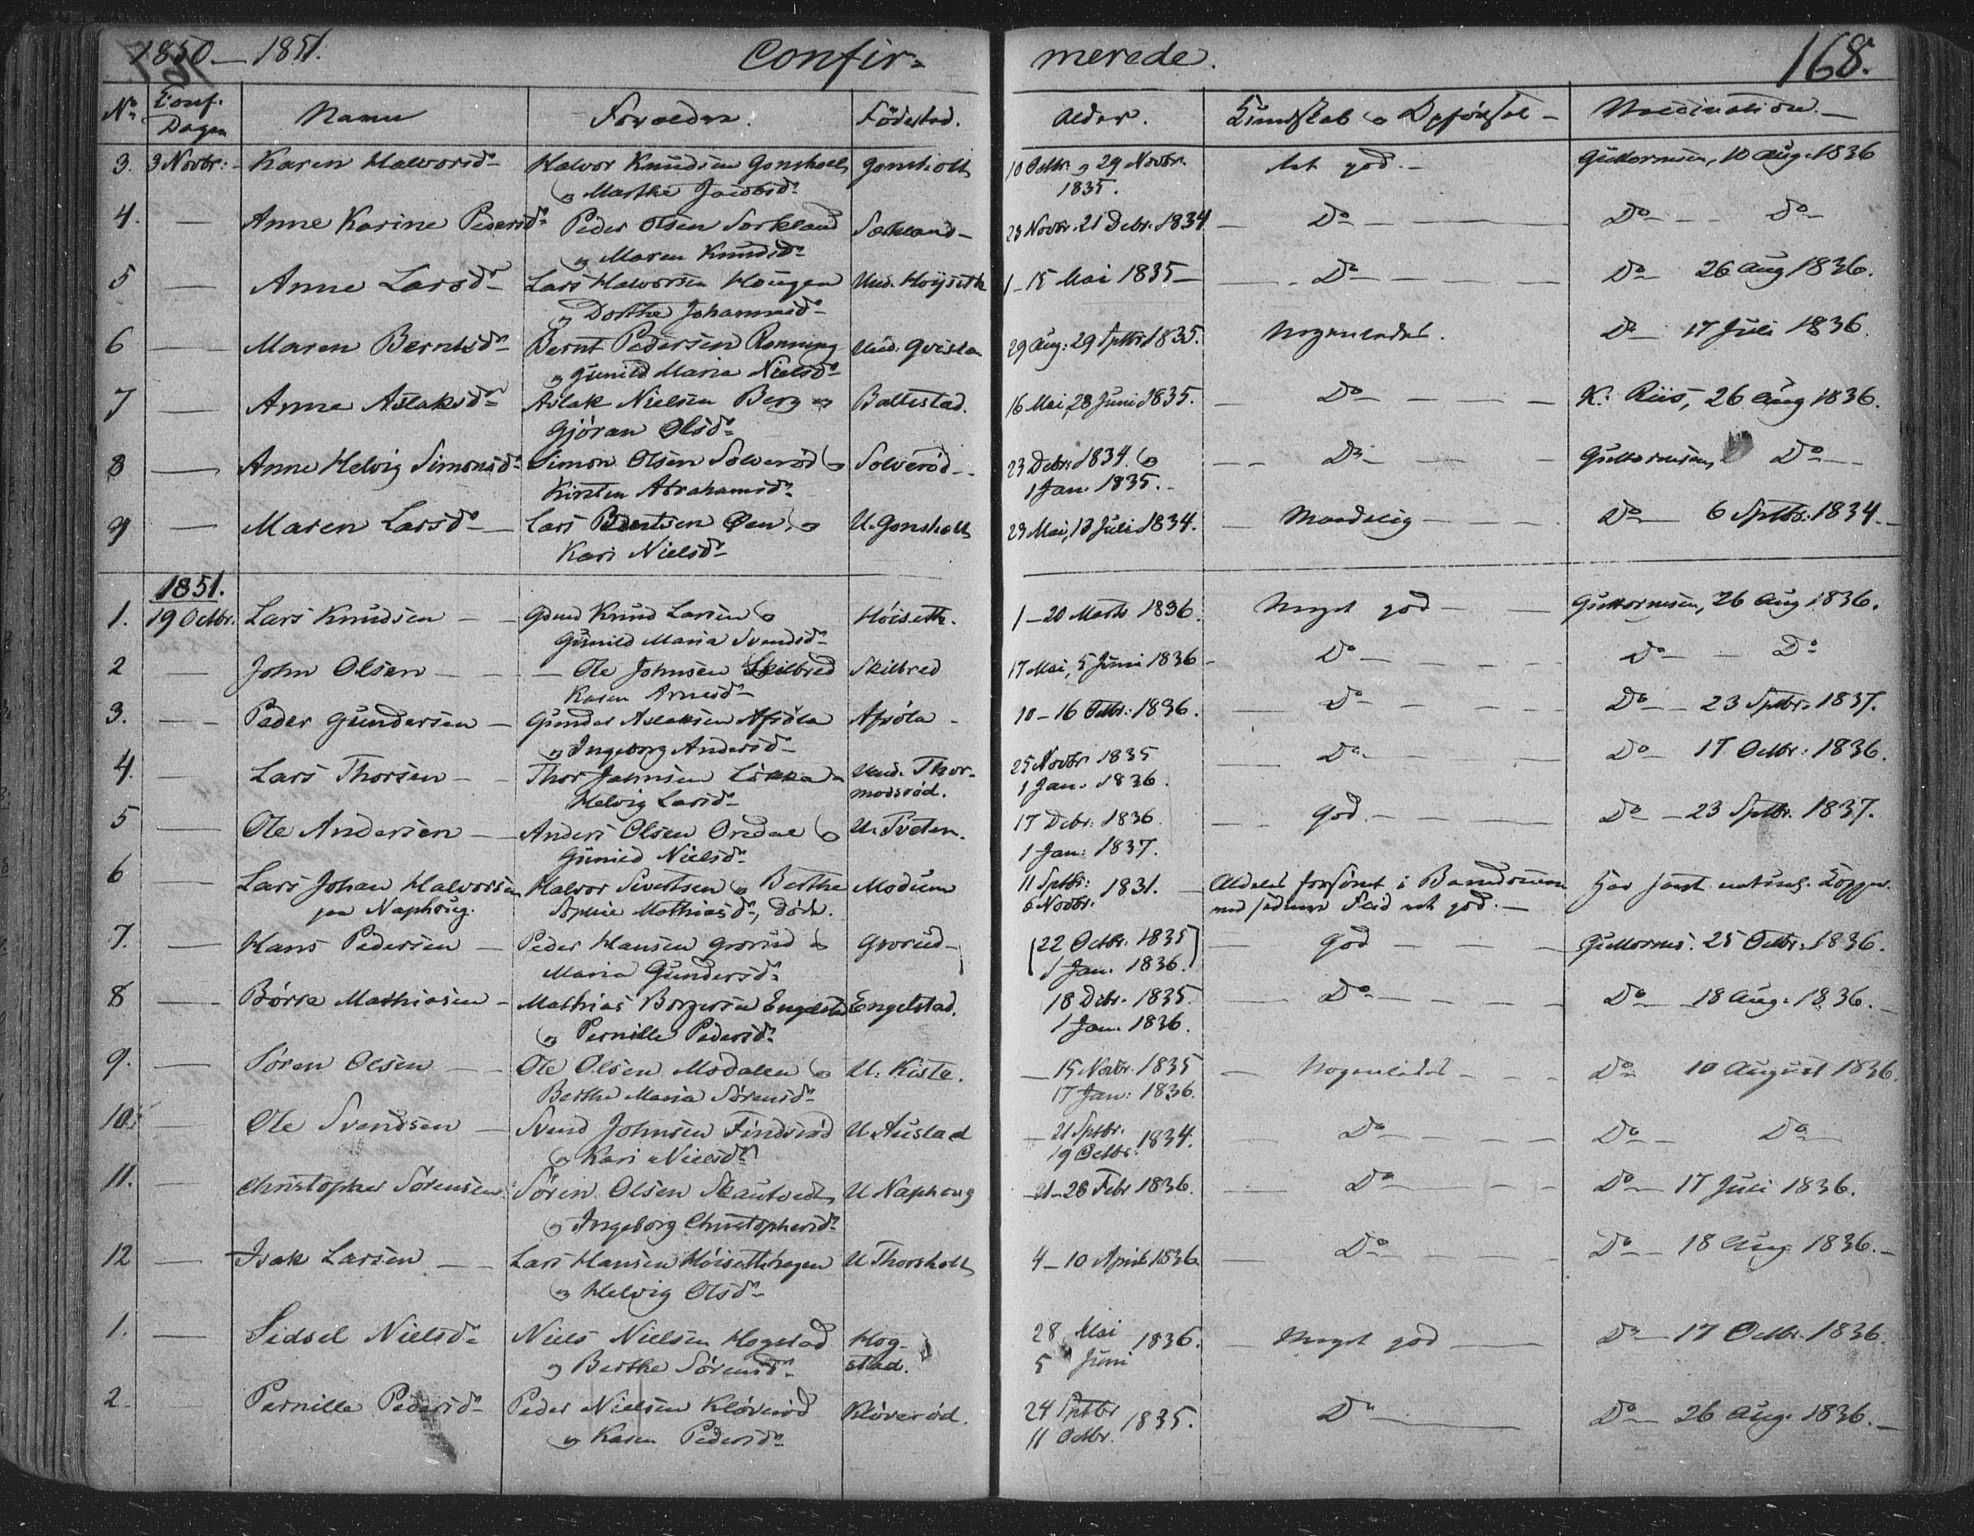 1850 — 1851. Confir- merede. 168.
No. Conf. Dagen Navne Forældre. Fødested. Alder. Kundskab og Opførsel — Vaccination. —
3. 3 Novbr: - Karen Halvorsdr. Halvor Knudsen Gonsholt Gonsholt 10 Octbr. og 29 Novbr. Gultormsen, 10 Aug. 1836
og Marthe Jacobsdr. 1835.
4. — Anne Karine Pedersdr. Peder Olsen Sorkland 23 Novbr. 21 Debr. 1834 — Do — Do — Do
og Maren Knudsdr.
5 — Anne Larsdr. Lars Halvorsen Haugen Und. Høiseth 1 - 15 Mai 1835 — Do — Do 26 Aug 1836.
og Dorthe Johannesdr.
6 — Maren Berntsdr. Bernt Pedersen Rønning Und. Qvislen 29 Aug: 29 Sptbr 1835. Nogenledes. Do 17 Juli 1836.
og Gunild Maria Nielsdr.
7 — Anne Aslaksdr. Aslak Nielsen Berg og Battestad. 16 Mai 28 Juni 1835. — Do — K. Riis, 26 Aug 1836.
Gjøran Olsdr.
8 — Anne Helvig Simonsdr. Simon Olsen Solverød og Solverød — 23 Debr. 1834 og — Do — Do —
Kirsten Abrahamsdr. 1 Jan. 1835. —
9 — Maren Larsdr. — Lars Berntsen og U. Gonsholt 23 Mai, 13 Juli 1834. — Maadelig — Do — 6 Sptbr. 1834. —
Kari Nielsdr.
1851.
1. 19 Octbr. Lars Knudsen — Knud Larsen og Høiseth. 1 — 20 Marts 1836. Meget god — Guttormsen, 26 Aug 1836.
Gunild Maria Svendsdr.
2 — John Olsen — Ole Johnsen Skilbred Skilbred 17 Mai, 5 Juni 1836 — Do — Do — Do
Karen Arnesdr.
3. — Peder Gundersen — Gunder Aslaksen 10 — 16 Octbr: 1836. — Do — Do — 23 Sptbr. 1837.
og Ingeborg Andersdr.
4. — Lars Thorsen — Thor Johnsen Løkka og Und. Thor- 25 Novbr. 1835 — Do — Do — 17 Octbr: 1836.
Helvig Larsdr. modsrød. 1 Jan. 1836.
5 — Ole Andersen — Anders Olsen og U. Tveten. 17 Debr. 1836 — God. — Do — 23 Sptbr. 1837.
Gunild Nielsdr. 1 Jan: 1837.
6 — Lars Johan Halvorsen Halvor Sivertsen og Berthe Modum 11 Sptbr: 1831. — forsømt i Barndommen Har havt naturl. Kopper.
paa Naphoug. Sophie Mathiasdr., døde. 6 Novbr. med sildning Flid ret god. —
7. — Hans Pedersen — Peder Hansen Grorud og Grorud — 22 Octbr. 1835 — God — Guttorms. 25 Octbr. 1836.
Maria Gundersdr. 1 Jan. 1836.
8 — Børre Mathiasen — Mathias Borgersen Engelstad Engelstad. 18 Debr. 1835. — Do — Do — 18 Aug. 1836. —
og Pernille Pedersdr. 1 Jan. 1836.
9. — Søren Olsen — Ole Olsen Modalen og U. Kiste. — 15 Novbr. 1835 — Nogenledes — Do — 10 August 1836.
Berthe Maria Sørensdr. 17 Jan: 1836.
10. — Ole Svendsen — Svend Johnsen U. Austad — 21 Sptbr. 1834. — Do — Do — Do —
og Kari Nielsdr. 19 Octbr.
11. — Christopher Sørensen Søren Olsen U Naphoug 21 — 28 Febr 1836. — Do — Do — 17 Juli 1836.
og Ingeborg Christophersdr.
12 — Isak Larsen — Lars Hansen Høisethhagen U Thorsholt 4 — 10 April 1836 — Do — Do — 18 Aug 1836. —
og Helvig Olsdr.
1. — Sidsel Nielsdr. Niels Nielsen Hogstad Hog- 28 Mai 1836. — Meget god — Do — 17 Octbr. 1836.
og Berthe Sørensdr. stad. 5 Juni
2. — Pernille Pedersdr. Peder Nielsen Kløverød Kløverød. 24 Sptbr 1835. — Do — Do — 26 Aug. 1836. —
og Karen Pedersdr. 11 Octbr.